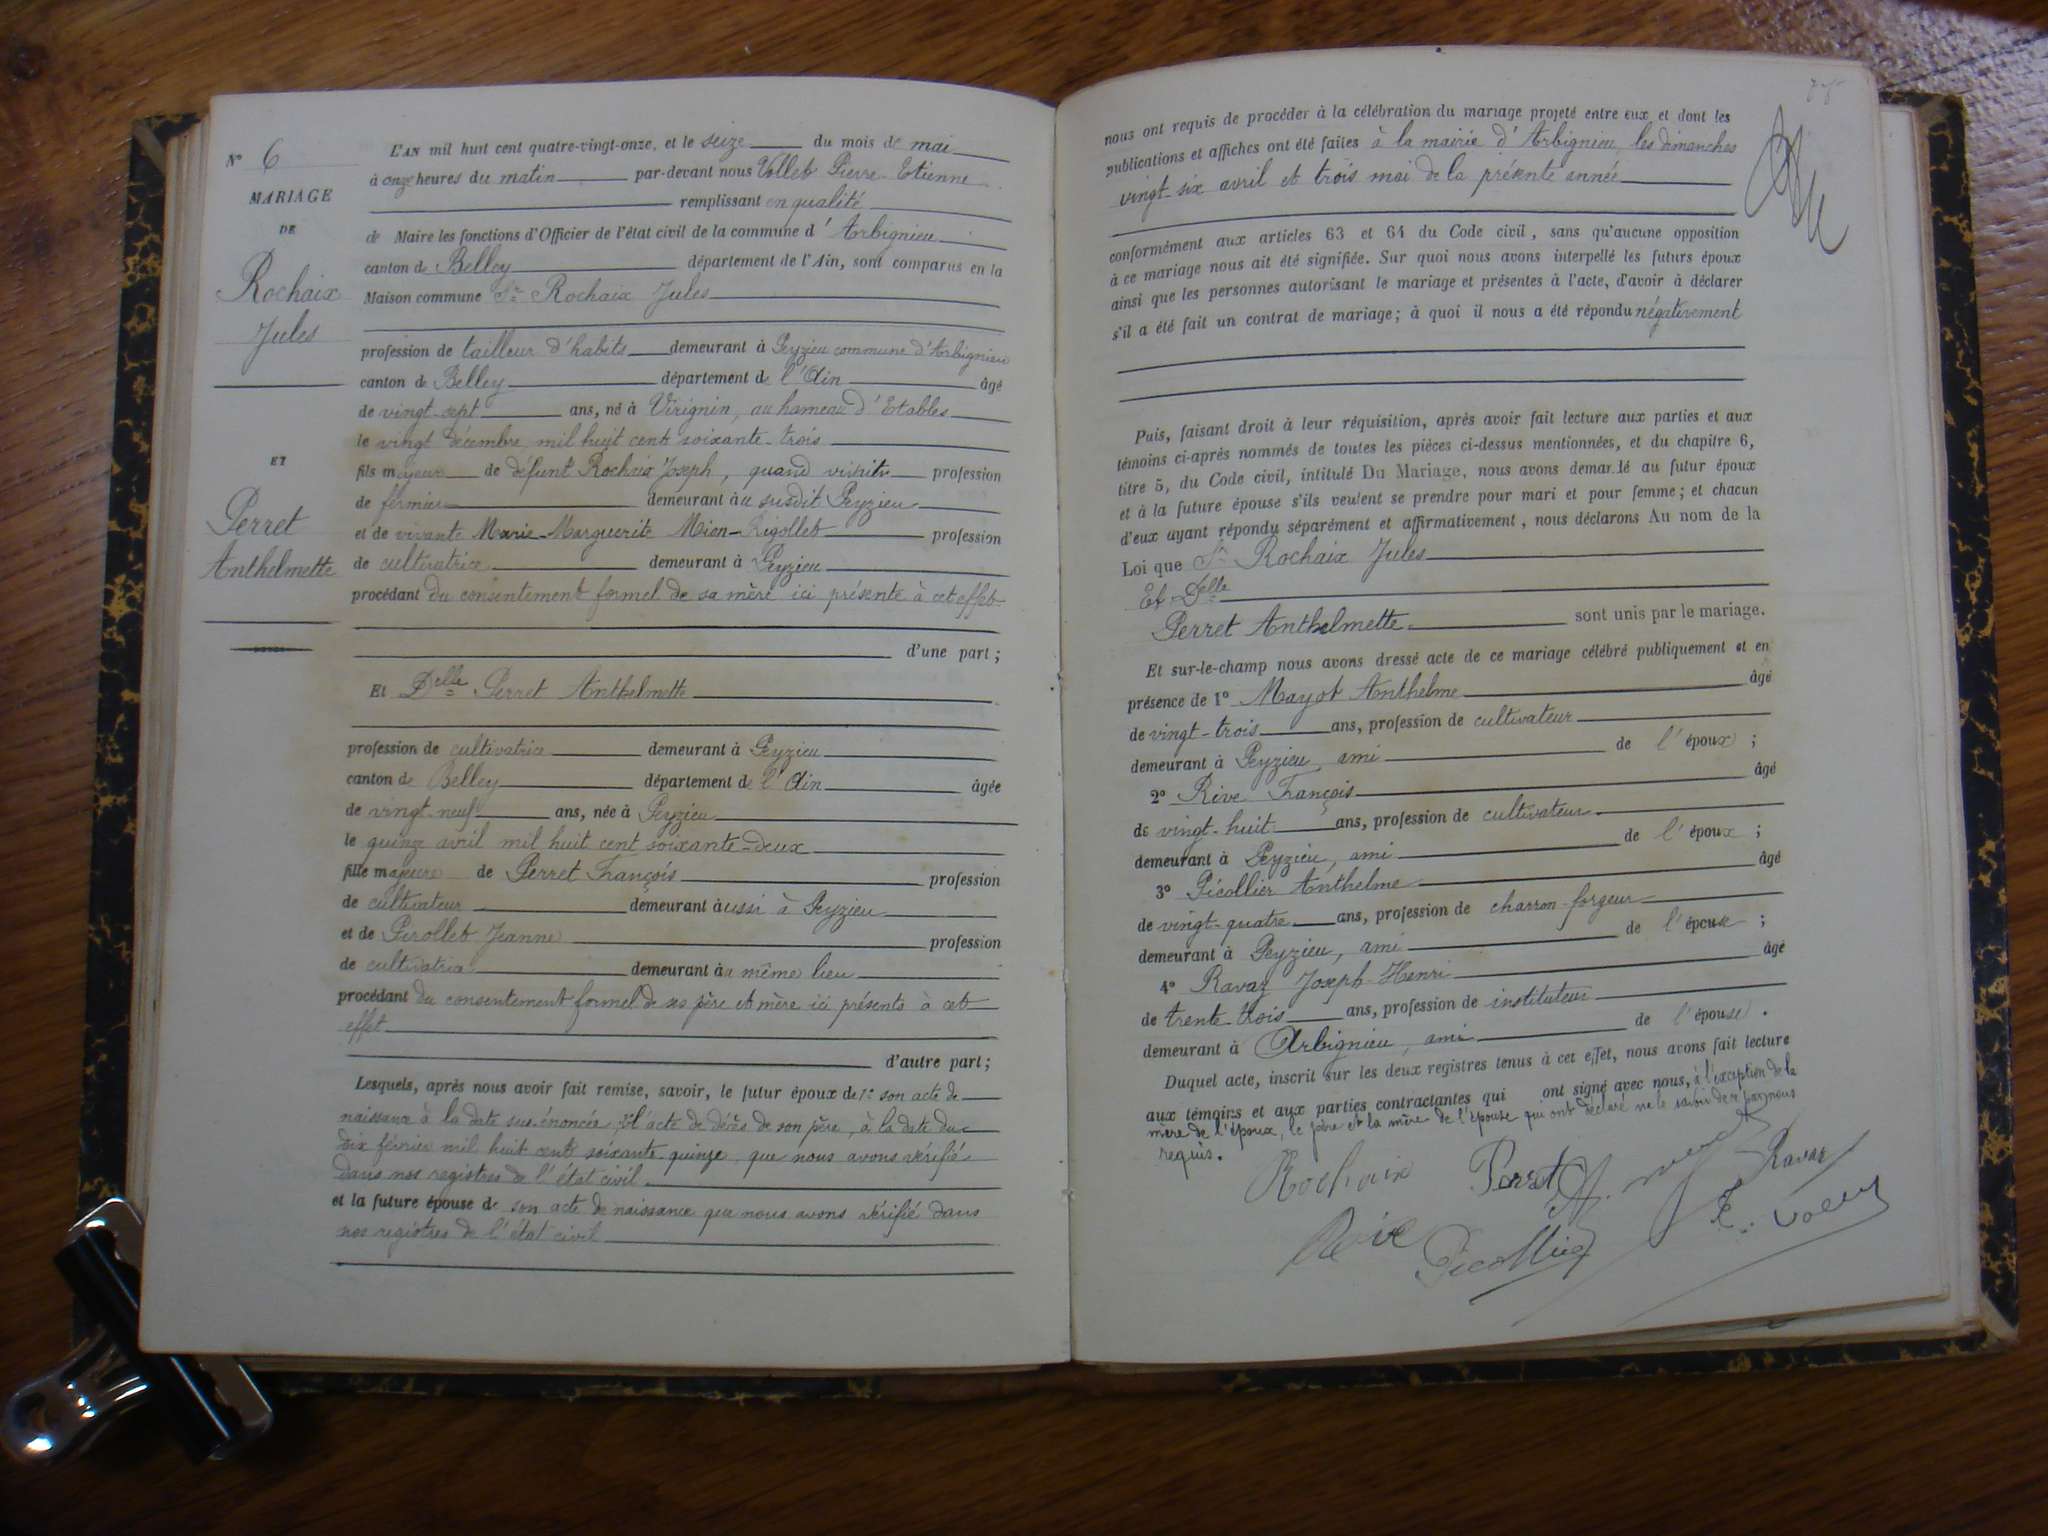 N° 6
MARIAGE
DE
Rochaix
Jules
ET
Perret
Anthelmette
L'AN mil huit cent quatre-vingt-onze, et le seize du mois de mai
à onze heures du matin par-devant nous Vollet Pierre-Etienne
remplissant en qualité
de Maire les fonctions d'Officier de l'état civil de la commune d'Arbignieu
canton de Belley département de l'Ain, sont comparus en la
Maison commune Sr Rochaix Jules
profession de tailleur d'habits demeurant à Peyzieu commune d'Arbignieu
canton de Belley département de l'Ain âgé
de vingt-sept ans, né à Virignin, au hameau d'Etables
le vingt décembre mil huit cent soixante-trois
fils majeur de défunt Rochaix Joseph, quand vivait profession
de fermier demeurant au susdit Peyzieu
et de vivante Marie-Marguerite Mion-Rigollet profession
de cultivatrice demeurant à Peyzieu
procédant du consentement formel de sa mère ici présente à cet effet
d'une part ;
Et Delle Perret Anthelmette
profession de cultivatrice demeurant à Peyzieu
canton de Belley département de l'Ain âgée
de vingt-neuf ans, née à Peyzieu
le quinze avril mil huit cent soixante-deux
fille majeure de Perret François profession
de cultivateur demeurant aussi à Peyzieu
et de Pirollet Jeanne profession
de cultivatrice demeurant au même lieu
procédant du consentement formel de ses père et mère ici présents à cet
effet
d'autre part ;
Lesquels, après nous avoir fait remise, savoir, le futur époux de 1° son acte de
naissance à la date sus-énoncée, 2° l'acte de décès de son père, à la date du
dix février mil huit cent soixante-quinze, que nous avons vérifié
dans nos registres de l'état civil
et la future épouse de son acte de naissance que nous avons vérifié dans
nos registres de l'état civil
nous ont requis de procéder à la célébration du mariage projeté entre eux et dont les
publications et affiches ont été faites à la mairie d'Arbignieu, les dimanches
vingt-six avril et trois mai de la présente année
conformément aux articles 63 et 64 du Code civil, sans qu'aucune opposition
à ce mariage nous ait été signifiée. Sur quoi nous avons interpellé les futurs époux
ainsi que les personnes autorisant le mariage et présentes à l'acte, d'avoir à déclarer
s'il a été fait un contrat de mariage ; à quoi il nous a été répondu négativement
Puis, faisant droit à leur réquisition, après avoir fait lecture aux parties et aux
témoins ci-après nommés de toutes les pièces ci-dessus mentionnées, et du chapitre 6,
titre 5, du Code civil, intitulé Du Mariage, nous avons demandé au futur époux
et à la future épouse s'ils veulent se prendre pour mari et pour femme ; et chacun
d'eux ayant répondu séparément et affirmativement, nous déclarons Au nom de la
Loi que Sr Rochaix Jules
Et Delle
Perret Anthelmette sont unis par le mariage.
Et sur-le-champ nous avons dressé acte de ce mariage célébré publiquement et en
présence de 1° Mayot Anthelme âgé
de vingt-trois ans, profession de cultivateur
demeurant à Peyzieu, ami de l'époux ;
2° Rive François âgé
de vingt-huit ans, profession de cultivateur
demeurant à Peyzieu, ami de l'époux ;
3° Picollier Anthelme âgé
de vingt-quatre ans, profession de charron-forgeur
demeurant à Peyzieu, ami de l'épouse ;
4° Ravaz Joseph-Henri âgé
de trente-trois ans, profession de instituteur
demeurant à Arbignieu, ami de l'épouse.
Duquel acte, inscrit sur les deux registres tenus à cet effet, nous avons fait lecture
aux témoins et aux parties contractantes qui ont signé avec nous, à l'exception de la
mère de l'époux, le père et la mère de l'épouse qui ont déclaré ne le savoir de ce par nous
requis.
Rochaix Perret Ravaz
Rive Picollier